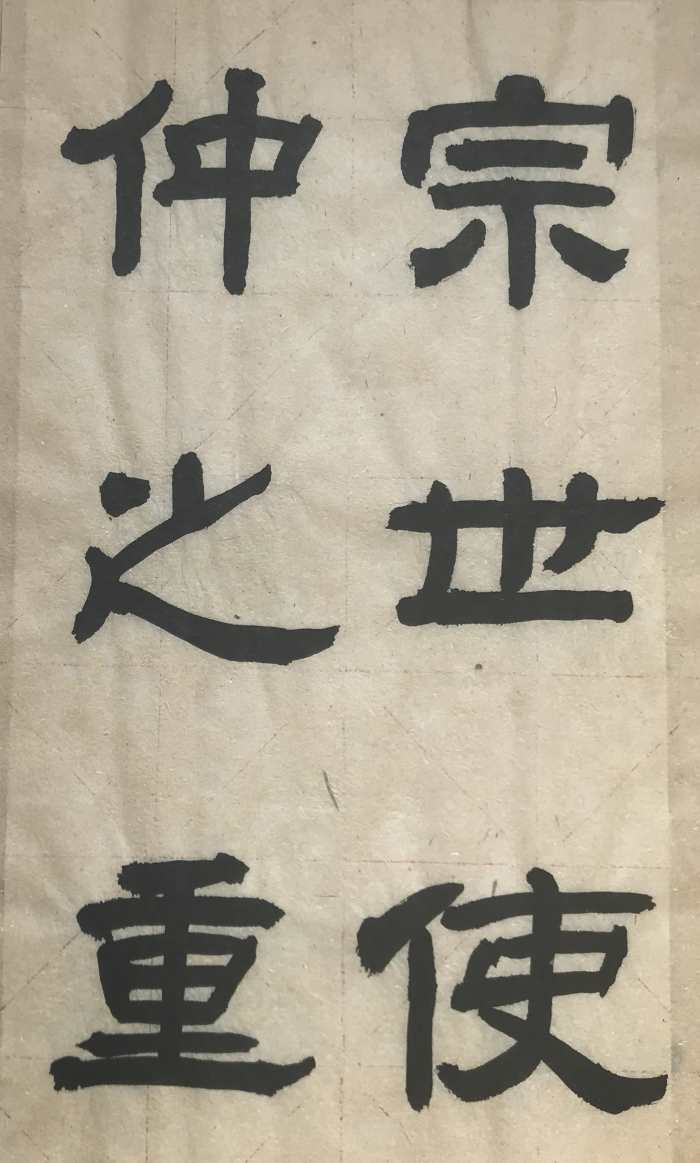 宗世使
仲之重